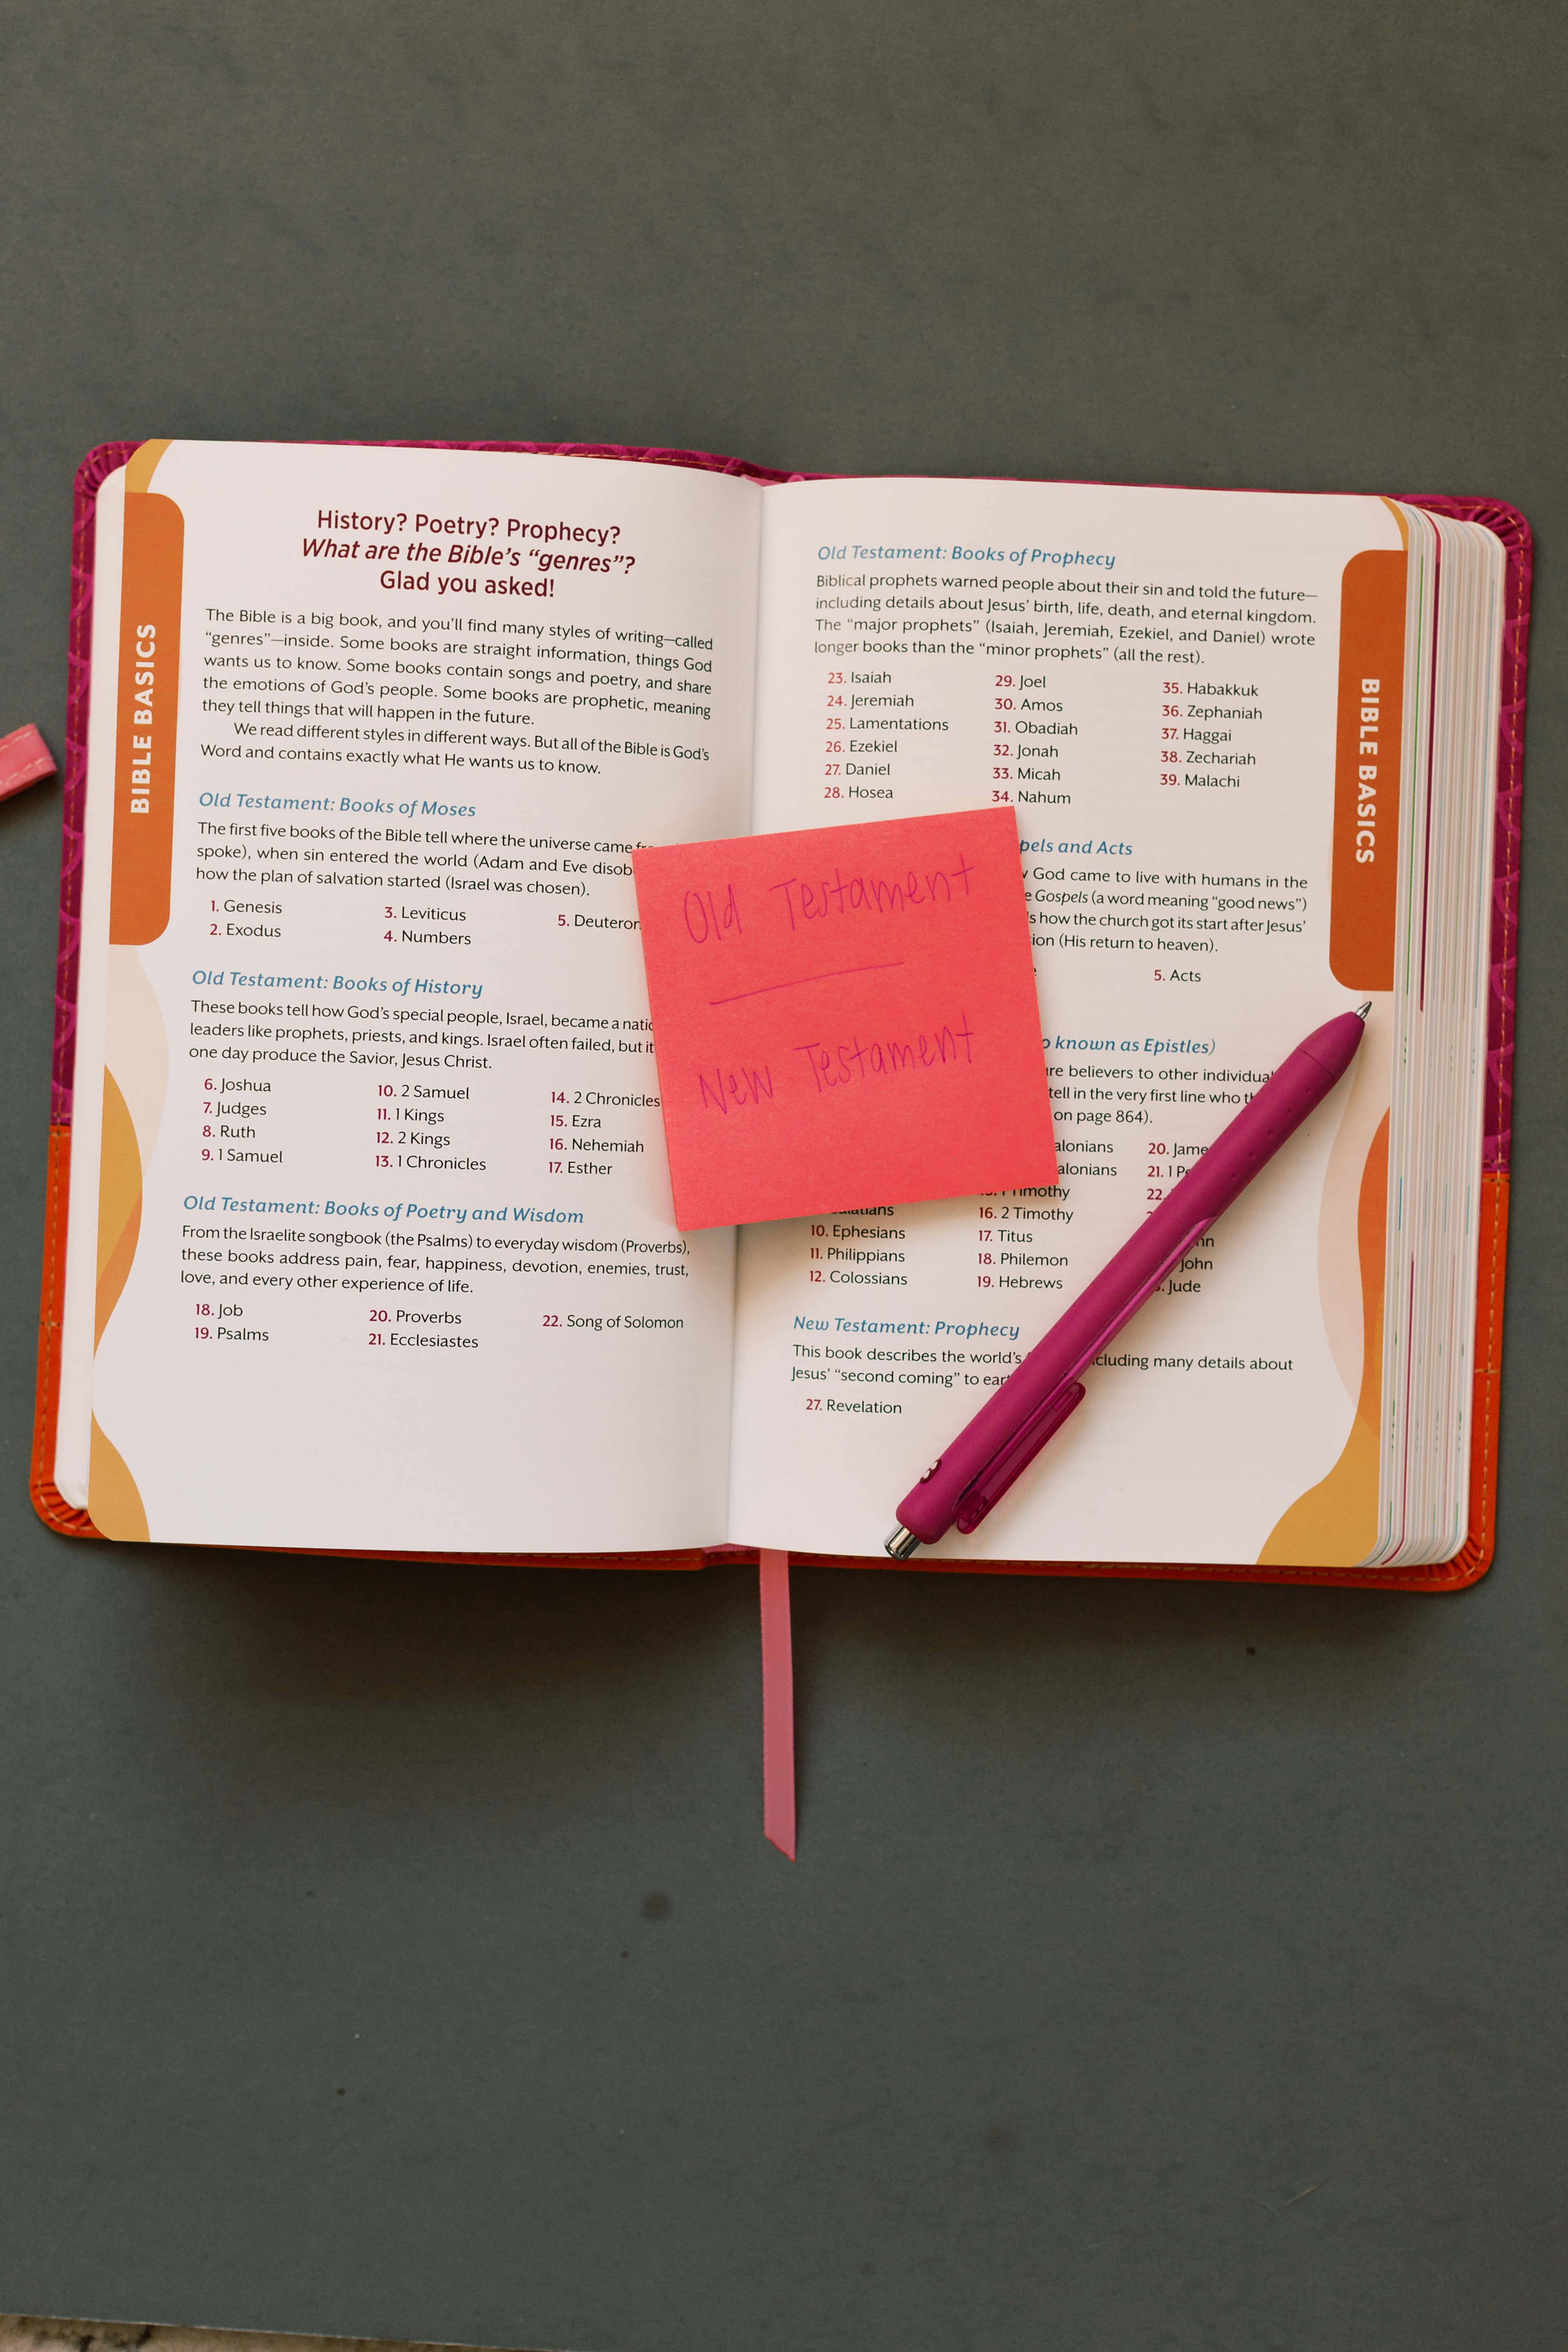 BIBLE BASICS
History? Poetry? Prophecy?
What are the Bible's “genres”?
Glad you asked!
The Bible is a big book, and you'll find many styles of writing—called
“genres”—inside. Some books are straight information, things God
wants us to know. Some books contain songs and poetry, and share
the emotions of God's people. Some books are prophetic, meaning
they tell things that will happen in the future.
We read different styles in different ways. But all of the Bible is God's
Word and contains exactly what He wants us to know.
Old Testament: Books of Moses
The first five books of the Bible tell where the universe came
spoke), when sin entered the world (Adam and Eve
how the plan of salvation started (Israel was chosen).
1. Genesis 3. Leviticus 5.
2. Exodus 4. Numbers
Old Testament: Books of History
These books tell how God's special people, Israel, became a
leaders like prophets, priests, and kings. Israel often failed, but it
one day produce the Savior, Jesus Christ.
6. Joshua 10. 2 Samuel 14. 2 Chronicles
7. Judges 11. 1 Kings 15. Ezra
8. Ruth 12. 2 Kings 16. Nehemiah
9. 1 Samuel 13. 1 Chronicles 17. Esther
Old Testament: Books of Poetry and Wisdom
From the Israelite songbook (the Psalms) to everyday wisdom (Proverbs),
these books address pain, fear, happiness, devotion, enemies, trust,
love, and every other experience of life.
18. Job 20. Proverbs 22. Song of Solomon
19. Psalms 21. Ecclesiastes
Old Testament
New Testament
Old Testament: Books of Prophecy
Biblical prophets warned people about their sin and told the future—
including details about Jesus' birth, life, death, and eternal kingdom.
The “major prophets” (Isaiah, Jeremiah, Ezekiel, and Daniel) wrote
longer books than the “minor prophets” (all the rest).
23. Isaiah 29. Joel 35. Habakkuk
24. Jeremiah 30. Amos 36. Zephaniah
25. Lamentations 31. Obadiah 37. Haggai
26. Ezekiel 32. Jonah 38. Zechariah
27. Daniel 33. Micah 39. Malachi
28. Hosea 34. Nahum
and Acts
God came to live with humans in the
Gospels (a word meaning “good news”)
how the church got its start after Jesus'
(His return to heaven).
5. Acts
known as Epistles)
believers to other
tell in the very first line who
on page 864).
20.
21. 1
22.
16. 2 Timothy
10. Ephesians 17. Titus
11. Philippians 18. Philemon
12. Colossians 19. Hebrews Jude
New Testament: Prophecy
This book describes the world's including many details about
Jesus' “second coming” to
27. Revelation
BIBLE BASICS